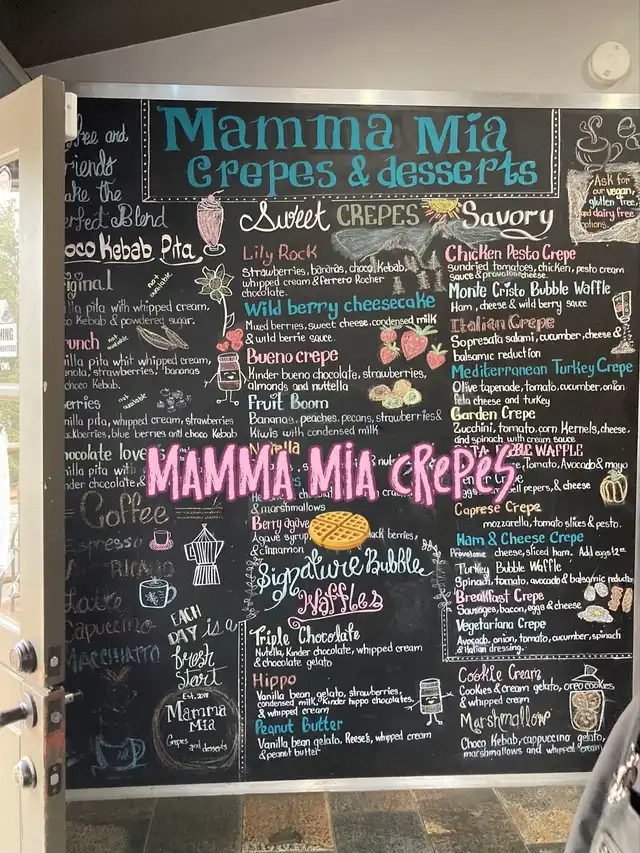 Mamma Mia
Crepes & desserts
Ask for
our vegan,
gluten free,
and dairy free
options.
Perfect Blend
Choco Kebab Pita
Original
not available
Vanilla pita with whipped cream,
Choco Kebab & powdered sugar.
Crunch
not available
Vanilla pita whit whipped cream,
granola, strawberries, bananas
& choco Kebab.
Berries
not available
Vanilla pita, whipped cream, strawberries
blackberries, blue berries and choco Kebab
Chocolate lovers
Vanilla pita
Coffee
Espresso
AMERICANO
Latte
Cappuccino
MACCHIATO
EACH
DAY is a
fresh
start
Est. 2018
Mamma
Mia
Crepes and desserts
Sweet CREPES Savory
Lily Rock
Strawberries, bananas, choco Kebab,
whipped cream & Ferrero Rocher
chocolate.
Wild berry cheesecake
Mixed berries, sweet cheese, condensed milk
& wild berrie sauce.
Bueno crepe
Kinder bueno chocolate, strawberries,
almonds and nuttella
Fruit Boom
Bananas, peaches, pecans, strawberries &
Kiwis with condensed milk
Nutella
& marshmallows
Berry agave
Agave syrup, black berries,
& cinnamon
MAMMA MIA CRePeS
Signature Bubble
Waffles
Triple Chocolate
Nutella, Kinder chocolate, whipped cream
& chocolate gelato
Hippo
Vanilla bean gelato, strawberries,
condensed milk, Kinder hippo chocolates,
& whipped cream
Peanut Butter
Vanilla bean gelato, Reese's, whipped cream
& peanut butter
Chicken Pesto Crepe
sundried tomatoes, chicken, pesto cream
sauce & provolone cheese.
Monte Cristo Bubble Waffle
Ham, cheese & wild berry sauce
Italian Crepe
Sopresata salami, cucumber, cheese &
balsamic reduction
Mediterranean Turkey Crepe
Olive tapenade, tomato, cucumber, onion
feta cheese and turkey
Garden Crepe
Zucchini, tomato, corn Kernels, cheese,
and spinach with cream sauce
WAFFLE
Tomato, Avocado & mayo
bell pepers, & cheese
Caprese Crepe
mozzarella, tomato slices & pesto.
Ham & Cheese Crepe
Provolone cheese, sliced ham. Add eggs
Turkey Bubble Waffle
Spinach, tomato, avocado & balsamic reduction
Breakfast Crepe
Sausages, bacon, eggs & cheese
Vegetariana Crepe
Avocado, onion, tomato, cucumber, spinach
& italian dressing.
Cookie Cream
Cookies & cream gelato, oreo cookies
& whipped cream
Marshmallow
Choco Kebab, cappuccino gelato,
marshmallows and whipped cream